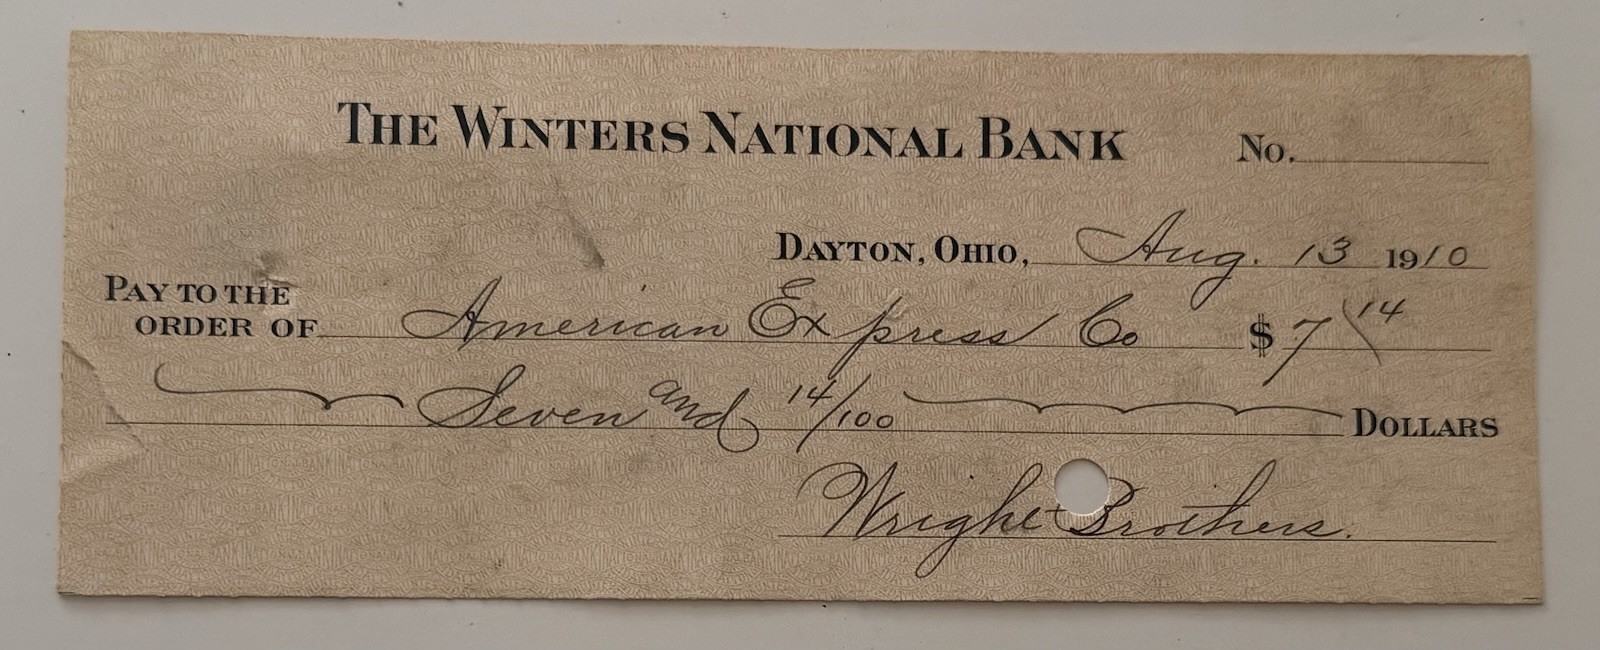 THE WINTERS NATIONAL BANK No.
DAYTON, OHIO, Aug. 13 1910
PAY TO THE
ORDER OF American Express Co $7 14
Seven and 14/100 DOLLARS
Wright Brothers.